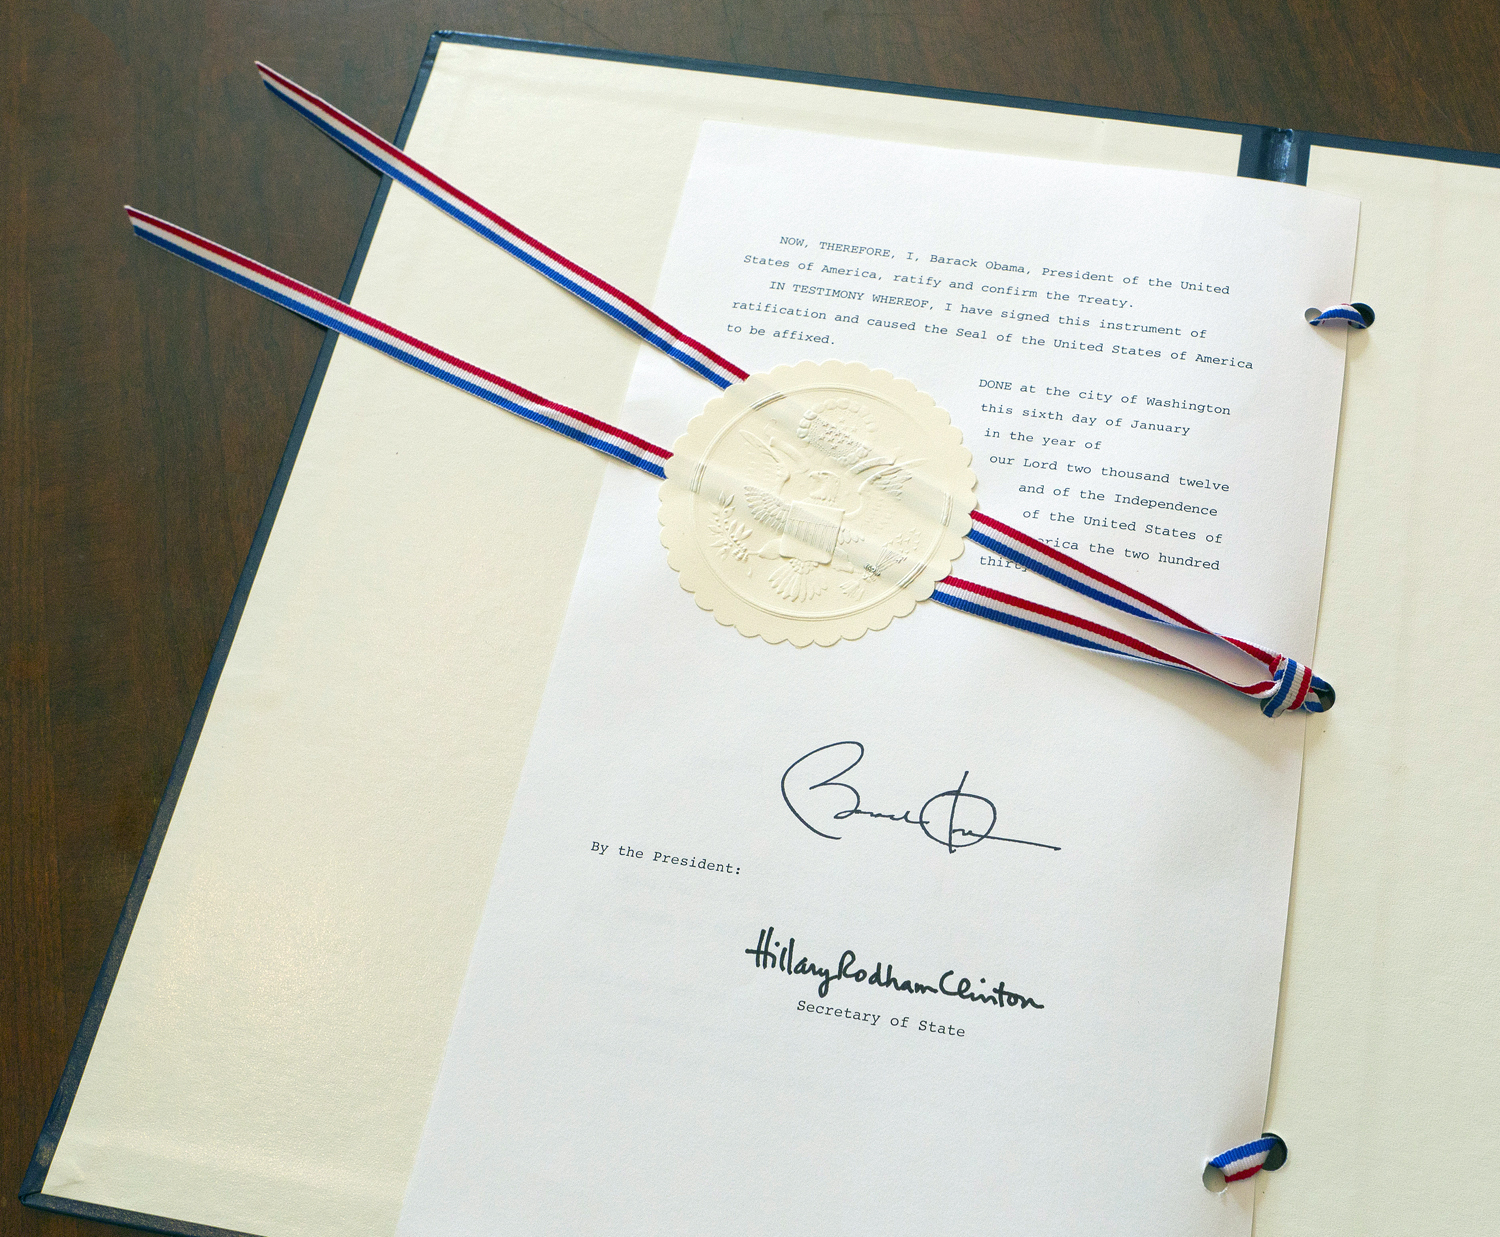 NOW, THEREFORE, I, Barack Obama, President of the United
States of America, ratify and confirm the Treaty.
IN TESTIMONY WHEREOF, I have signed this instrument of
ratification and caused the Seal of the United States of America
to be affixed.
DONE at the city of Washington
this sixth day of January
in the year of
our Lord two thousand twelve
and of the Independence
of the United States of
the two hundred
By the President:
Hillary Rodham Clinton
Secretary of State